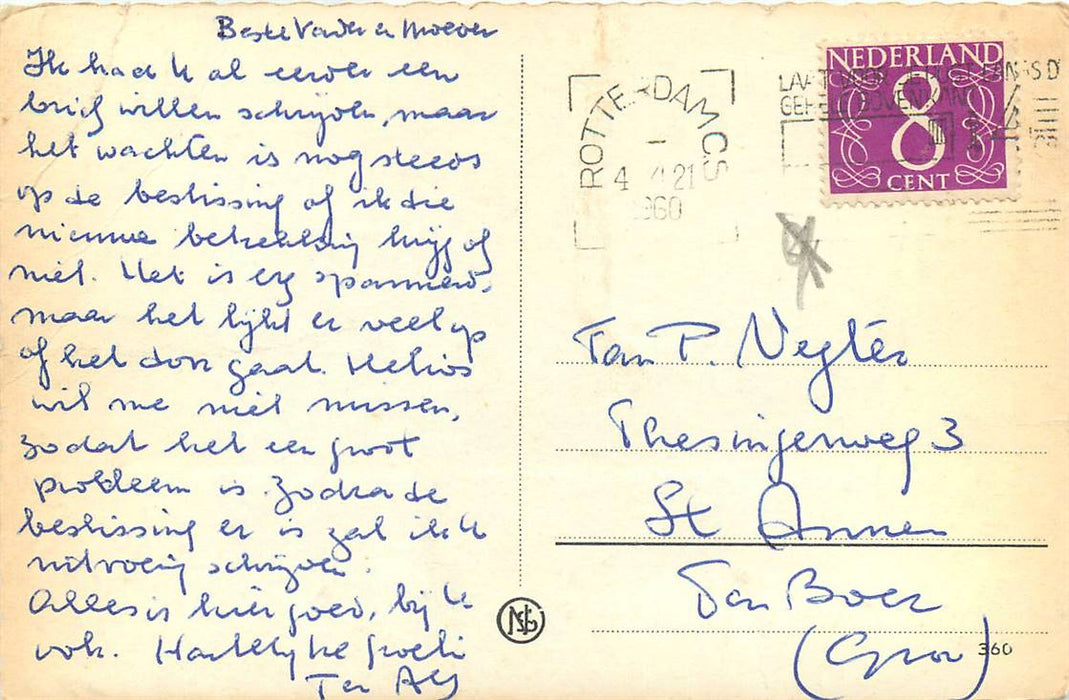 Beste Vader en Moeder
Ik had U al eerder een
brief willen schrijven, maar
het wachten is nog steeds
op de beslissing of ik die
nieuwe betrekking krijg of
niet. Het is erg spannend,
maar het lijkt er veel op
of het door gaat. Helios
wil me niet missen,
zodat het een groot
probleem is. Zodra de
beslissing er is zal ik U
uitvoerig schrijven.
Alles is hier goed, bij U
ook. Hartelijke groeten
ROTTERDAM CS
4 21
1960
NEDERLAND
8
CENT
Fam P. Negter
Thesingerweg 3
St Annen
Ten Boer
(Gron)
360